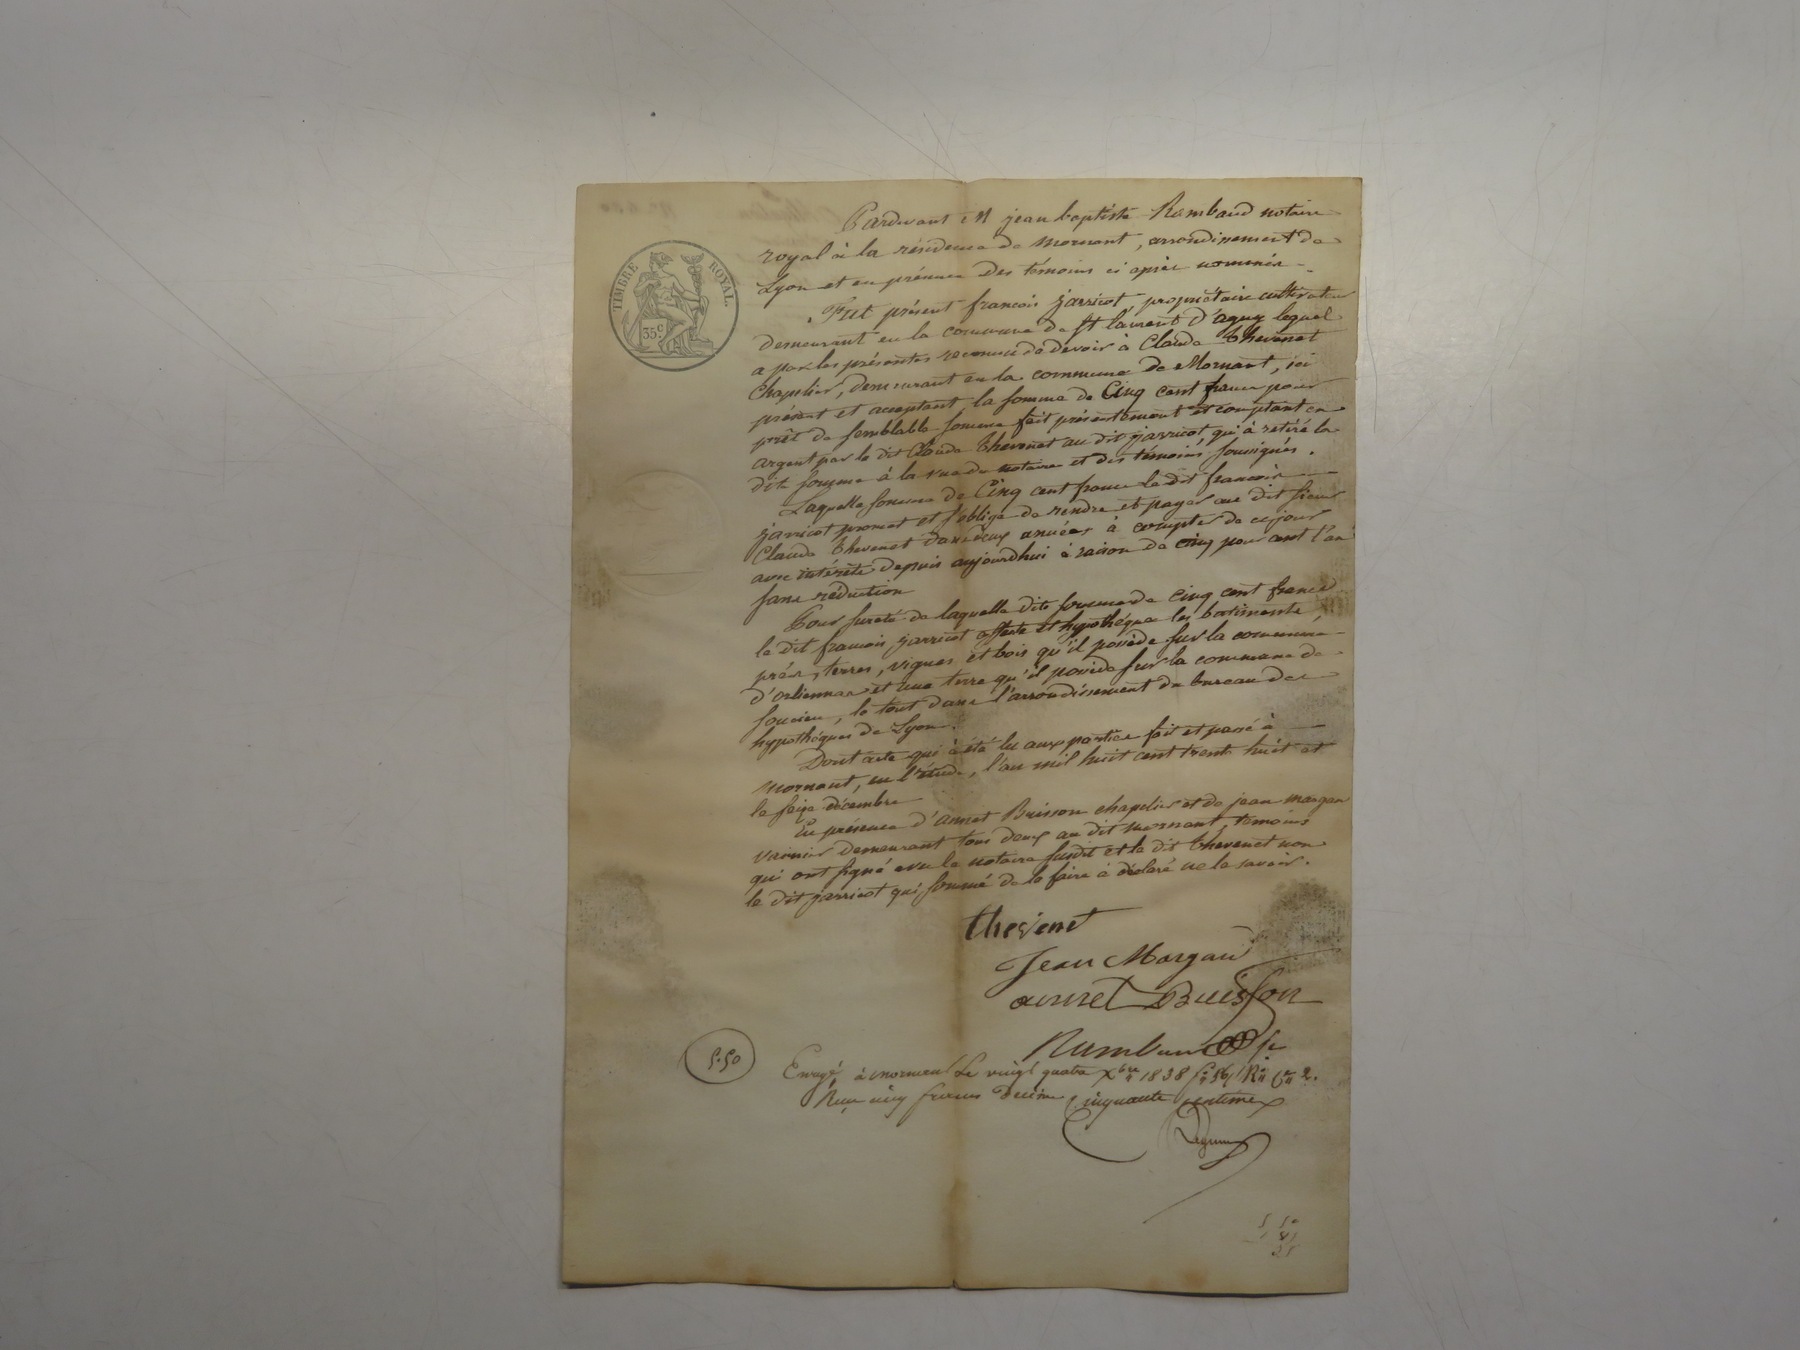 TIMBRE ROYAL.
35c.
Pardevant M jean baptiste Rambaud notaire
royal à la résidence de Mornant, arrondissement de
Lyon et en présence des témoins ci après nommés
Fut présent françois jarricot, propriétaire cultivateur
demeurant en la commune de St laurent d'agny lequel
a par les présentes reconnu de devoir à Claude Thevenet
chapelier, demeurant en la commune de Mornant, ici
présent et acceptant la somme de Cinq cent francs pour
prêt de semblable somme fait présentement et comptant en
argent par le dit Claude Thevenet au dit jarricot qui à retiré la
dite somme à la vue du notaire et des témoins soussignés.
Laquelle somme de Cinq cent francs le dit françois
jarricot promet et s'oblige de rendre et payer au dit sieur
Claude Thevenet dans deux années à compter de ce jour
avec intérêts depuis aujourdhui à raison de cinq pour cent l'an
sans réduction
Pour sureté de laquelle dite somme de cinq cent francs
le dit françois jarricot affecte et hypothéque les batiments,
prés, terres, vignes et bois qu'il possède sur la commune
d'orliennas et une terre qu'il posséde sur la commune de
soucieu, le tout dans l'arrondissement du bureau des
hypothéques de Lyon.
Dont acte qui à été lu aux parties fait et passé à
Mornant, en l'étude, l'an mil huit cent trente huit et
le seize décembre
En présence d'annet Buisson chapelier et de jean margan
demeurant tous deux au dit mornant, témoins
qui ont signé avec le notaire susdit et le dit thevenet non
le dit jarricot qui, sommé de le faire à déclaré ne le savoir.
thevenet
Jean Morgan
annet Buisson
Rambaud
5.50
à mornant Le vingt quatre Xbre 1838 fo 56 Ro Ce 2.
Reçu cinq francs Décime Cinquante centimes